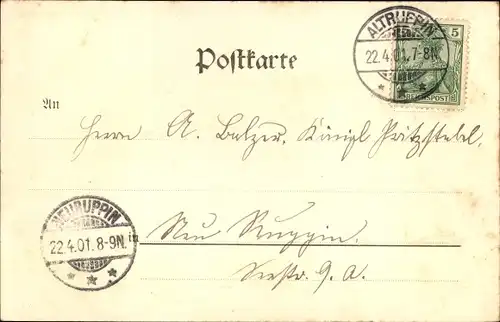 Postkarte
ALTRUPPIN
22.4.01.7-8N.
5
REICHSPOST
An
Herrn A. Balzer, Königl
NEURUPPIN
22.4.01.8-9N.
in Neu Ruppin.
Seestr. 9. A.